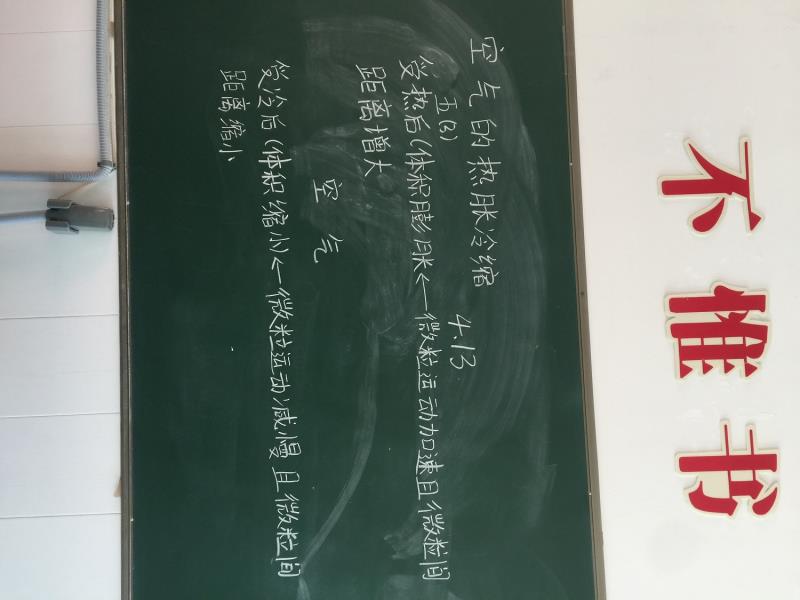 不惟书
空气的热胀冷缩
五(3) 4.13
受热后(体积膨胀)←微粒运动加速且微粒间
距离增大
空气
受冷后(体积缩小)←微粒运动减慢且微粒间
距离缩小